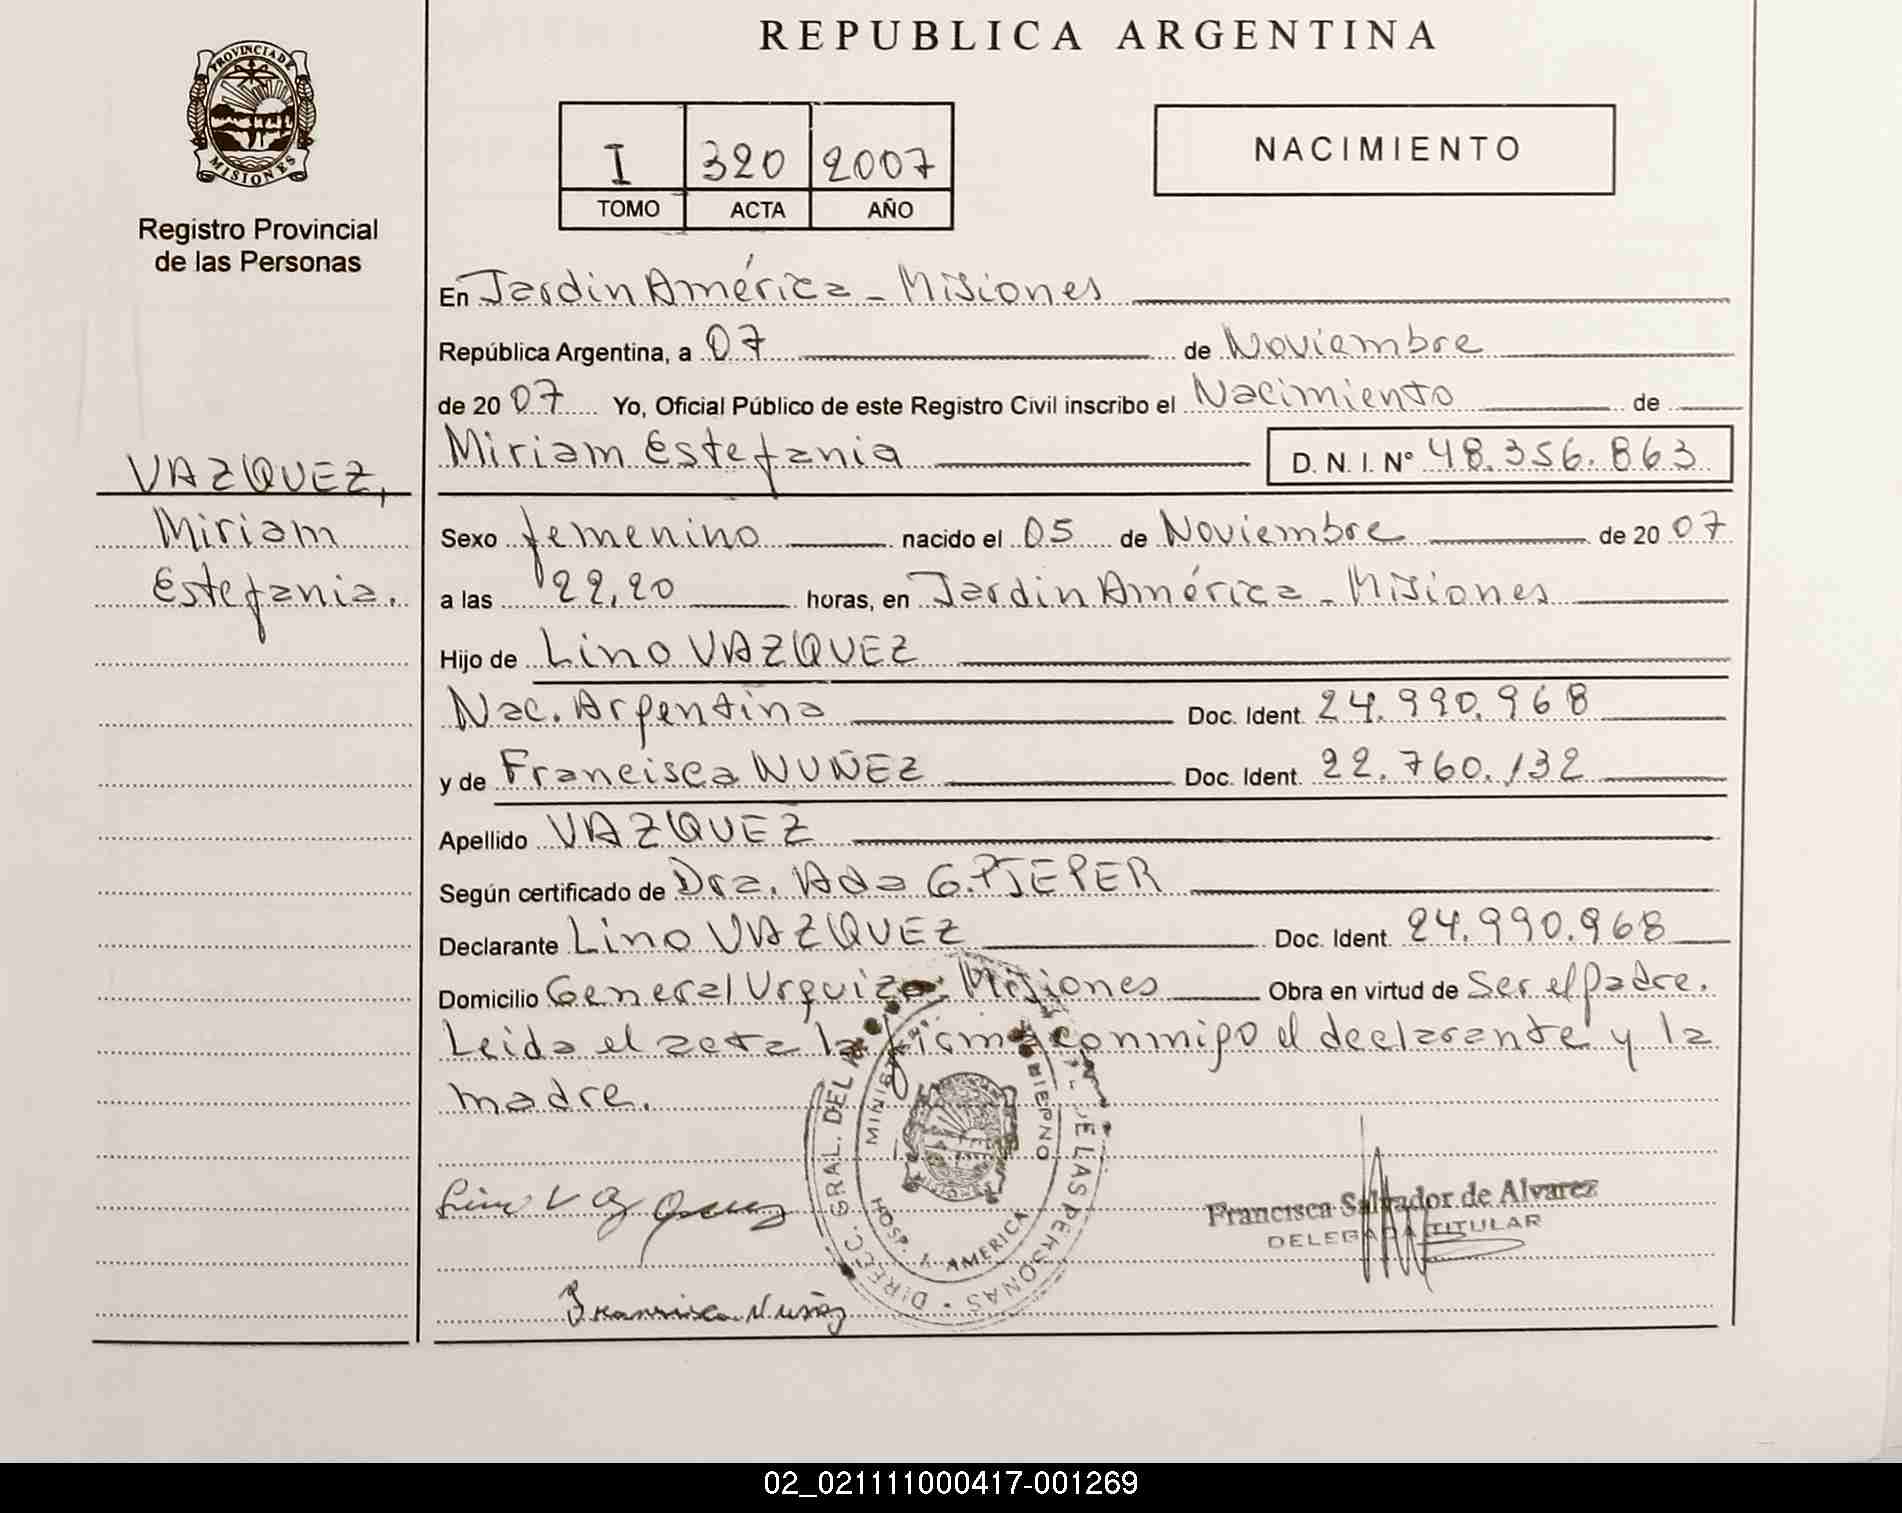 PROVINCIA DE
MISIONES
Registro Provincial
de las Personas
VAZQUEZ,
Miriam
Estefania.
REPUBLICA ARGENTINA
I 320 2007
TOMO ACTA AÑO
NACIMIENTO
En Jardin América - Misiones
República Argentina, a 07 de Noviembre
de 20 07 Yo, Oficial Público de este Registro Civil inscribo el Nacimiento de
Miriam Estefania D. N. I. Nº 48.356.863
Sexo femenino nacido el 05 de Noviembre de 20 07
a las 22,20 horas, en Jardin América - Misiones
Hijo de Lino VAZQUEZ
Nac. Argentina Doc. Ident. 24.990.968
y de Francisca NUÑEZ Doc. Ident. 22.760.132
Apellido VAZQUEZ
Según certificado de Dra. Ada G.
Declarante Lino VAZQUEZ Doc. Ident. 24.990.968
Domicilio General Urquiza Misiones Obra en virtud de Ser el padre.
Leida el acta la firma conmigo el declarante y la
madre.
Lino Vazquez
DIRECC. GRAL. DEL DE LAS PERSONAS
HOSP. J. AMERICA
Francisca Salvador de Alvarez
DELEGADA TITULAR
Francisca Nuñez
02_021111000417-001269